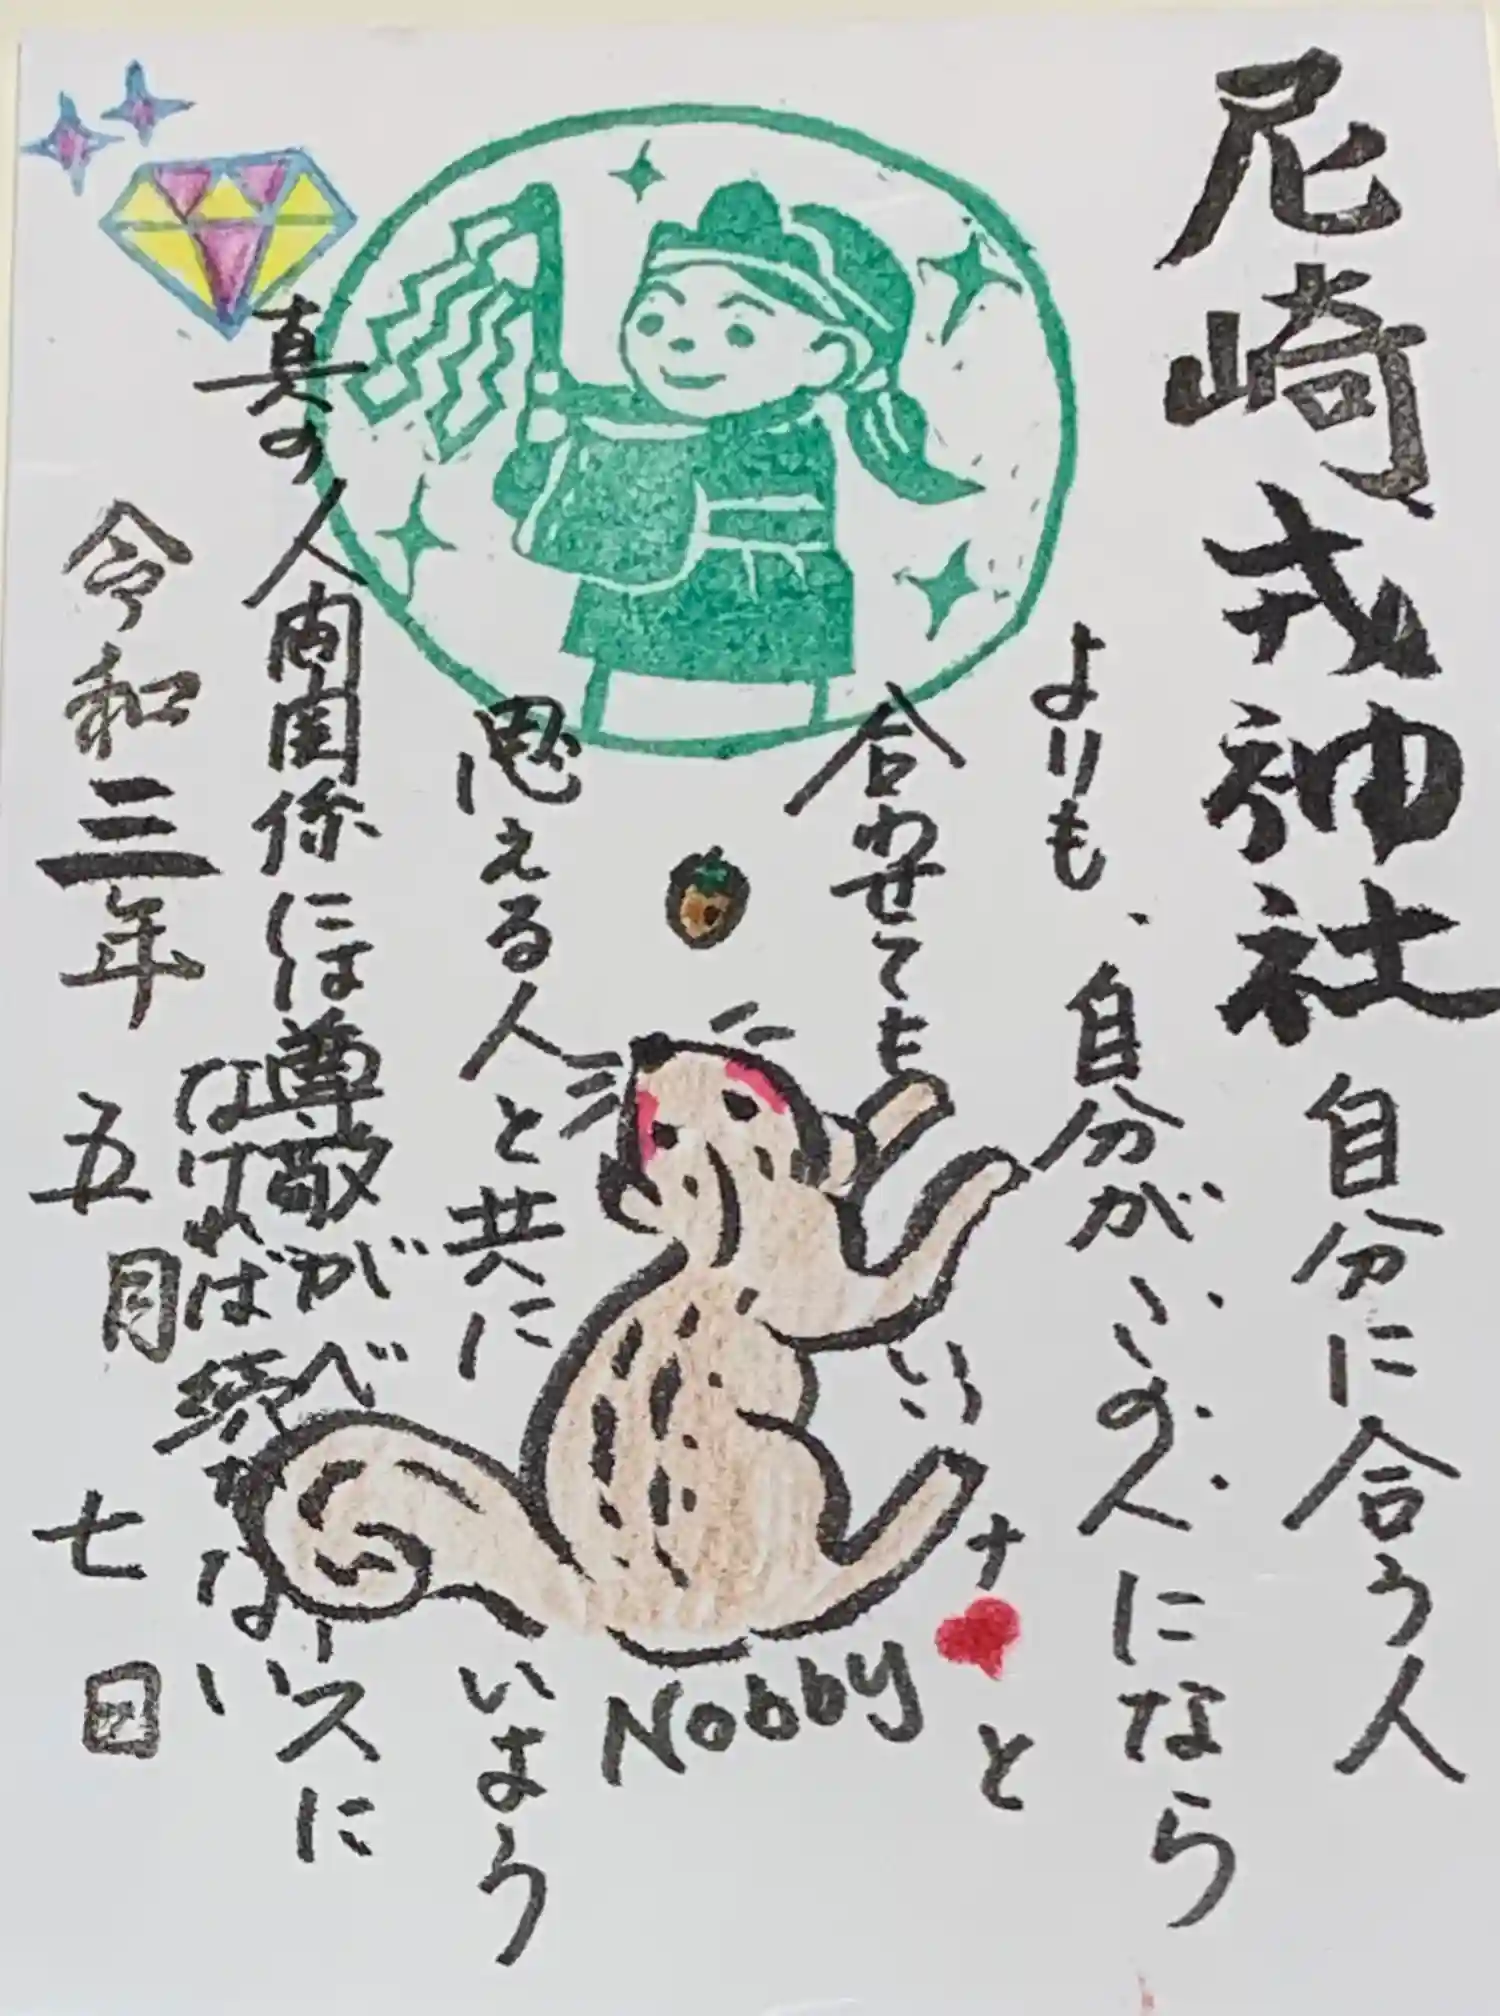 尼崎戎神社
自分に合う人
よりも、自分がこの人になら
合わせてもいいナ
と
思える人と共にいよう
真の人間関係には尊敬がベースに
なければ続かない
令和三年 五月 七日
Nobby